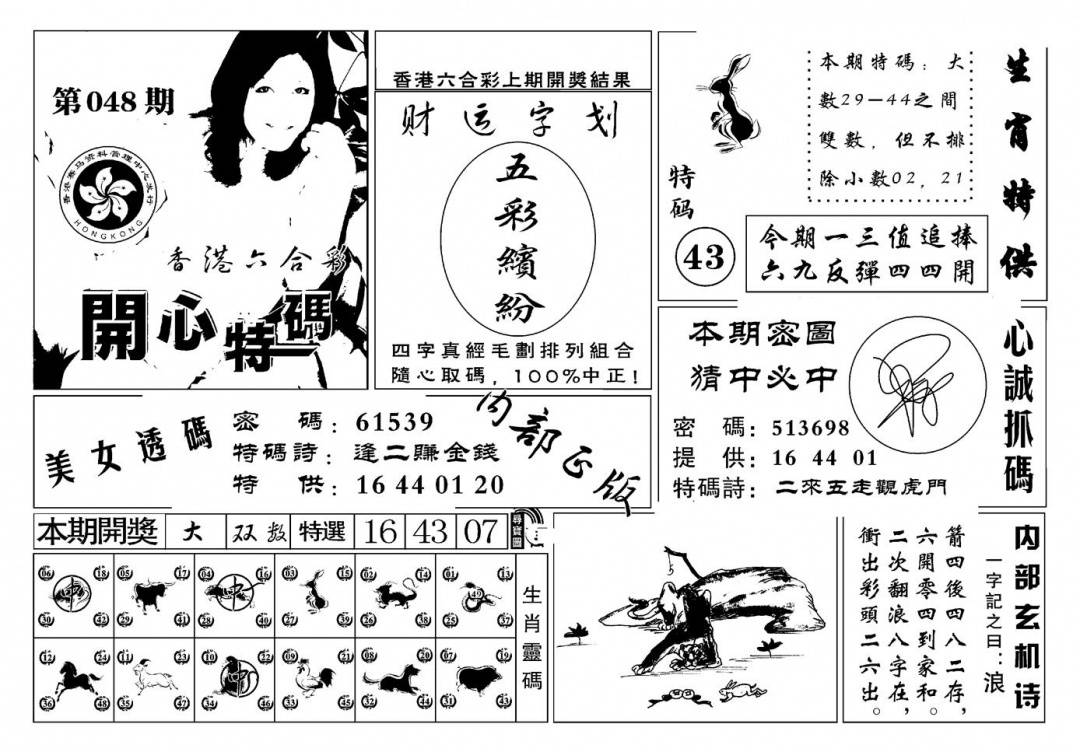 第048期
香港赛马资料管理中心发行
HONGKONG
香港六合彩
開心特碼
香港六合彩上期開獎結果
财运字划
五彩繽紛
四字真經毛劃排列組合
隨心取碼，100%中正！
特码
43
本期特碼：大
數29—44之間
雙數，但不排
除小數02，21
今期一三值追捧
六九反彈四四開
生肖特供
美女透碼
密　碼：61539
特碼詩：逢二賺金錢
特　供：16 44 01 20
内部正版
本期密圖
猜中必中
密　碼：513698
提　供：16 44 01
特碼詩：二來五走觀虎門
心誠抓碼
本期開獎 大 双数 特選 16 43 07
06 18 05 17 04 16 03 15 02 14 01 13
49
30 42 29 41 28 40 27 39 26 38 25 37
12 24 11 23 10 22 09 21 08 20 07 19
36 48 35 47 34 46 33 45 32 44 31 43
生肖靈碼
内部玄机诗
一字記之曰：浪
箭四後四八二存，
六開零四到家和。
二次翻浪八字在，
衝出彩頭二六出。